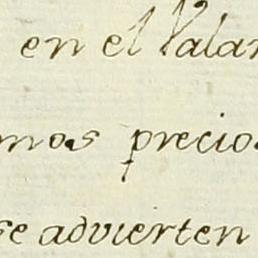 en el Palar
mos precio
se advierten